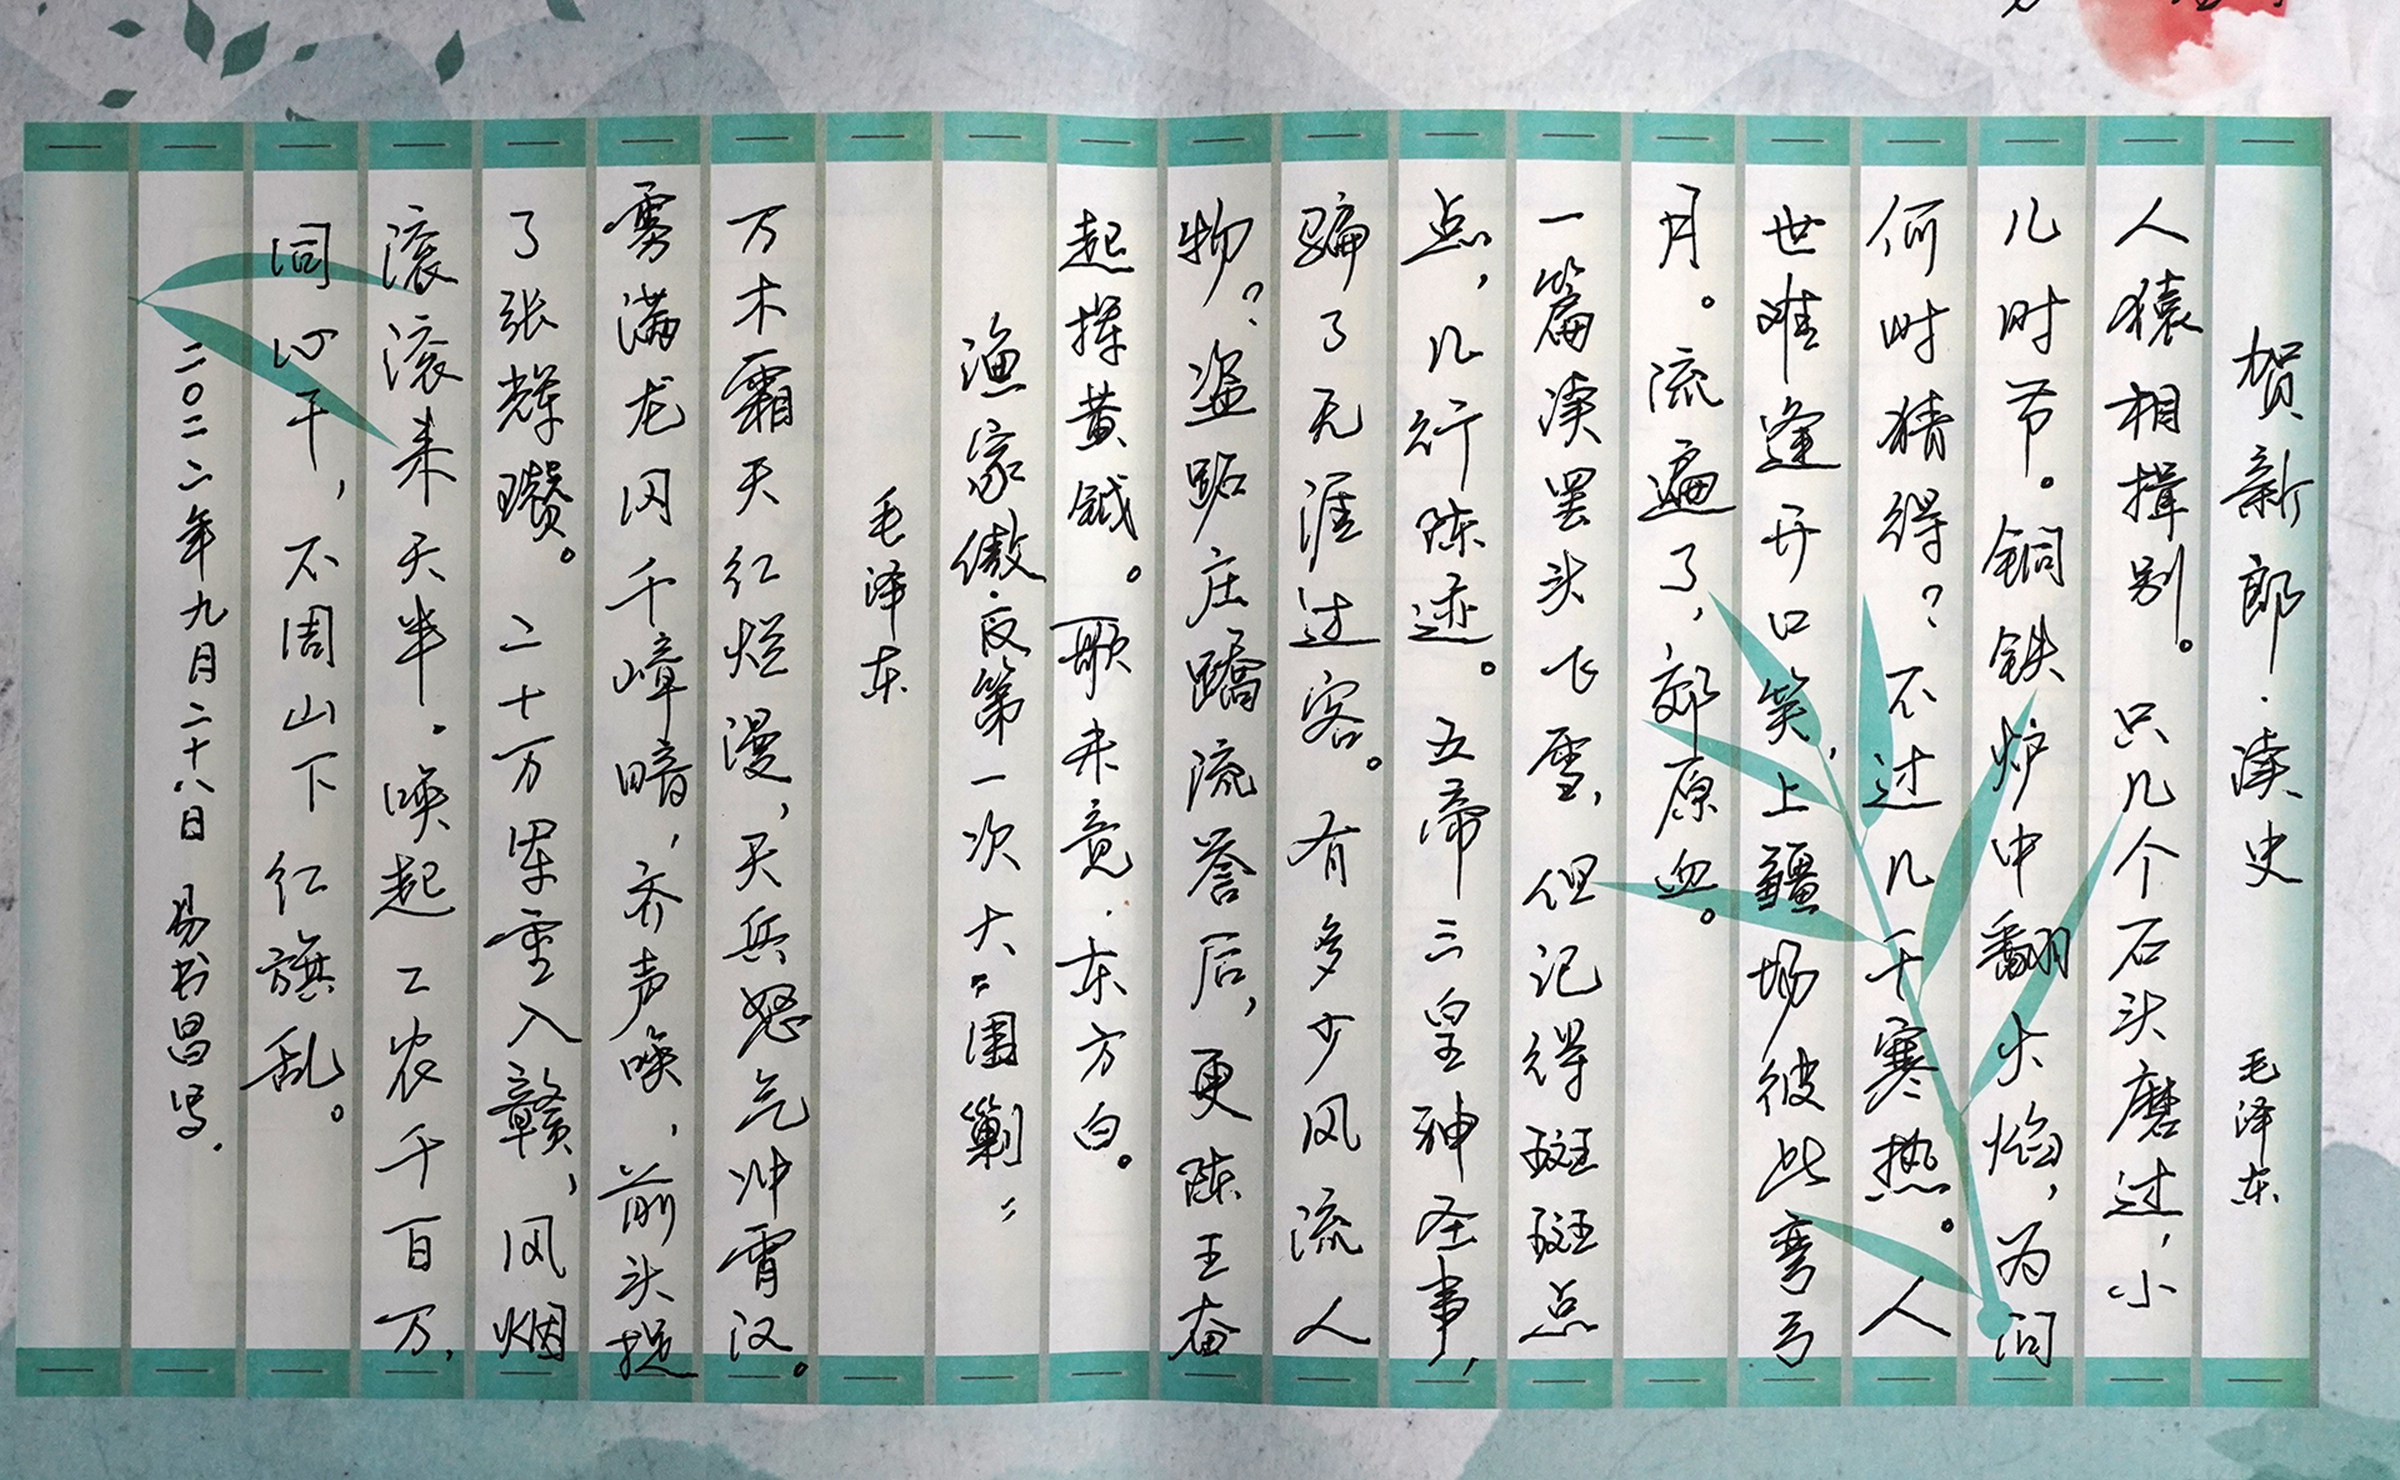 贺新郎·读史 毛泽东
人猿相揖别。只几个石头磨过,小
儿时节。铜铁炉中翻火焰,为问
何时猜得?不过几千寒热。人
世难逢开口笑,上疆场彼此弯弓
月。流遍了,郊原血。
一篇读罢头飞雪,但记得斑斑点
点,几行陈迹。五帝三皇神圣事,
骗了无涯过客。有多少风流人
物?盗跖庄蹻流誉后,更陈王奋
起挥黄钺。歌未竟,东方白。
渔家傲·反第一次大"围剿"
毛泽东
万木霜天红烂漫,天兵怒气冲霄汉。
雾满龙冈千嶂暗,齐声唤,前头捉
了张辉瓒。二十万军重入赣,风烟
滚滚来天半。唤起工农千百万,
同心干,不周山下红旗乱。
二〇二二年九月二十八日 易书昌写.